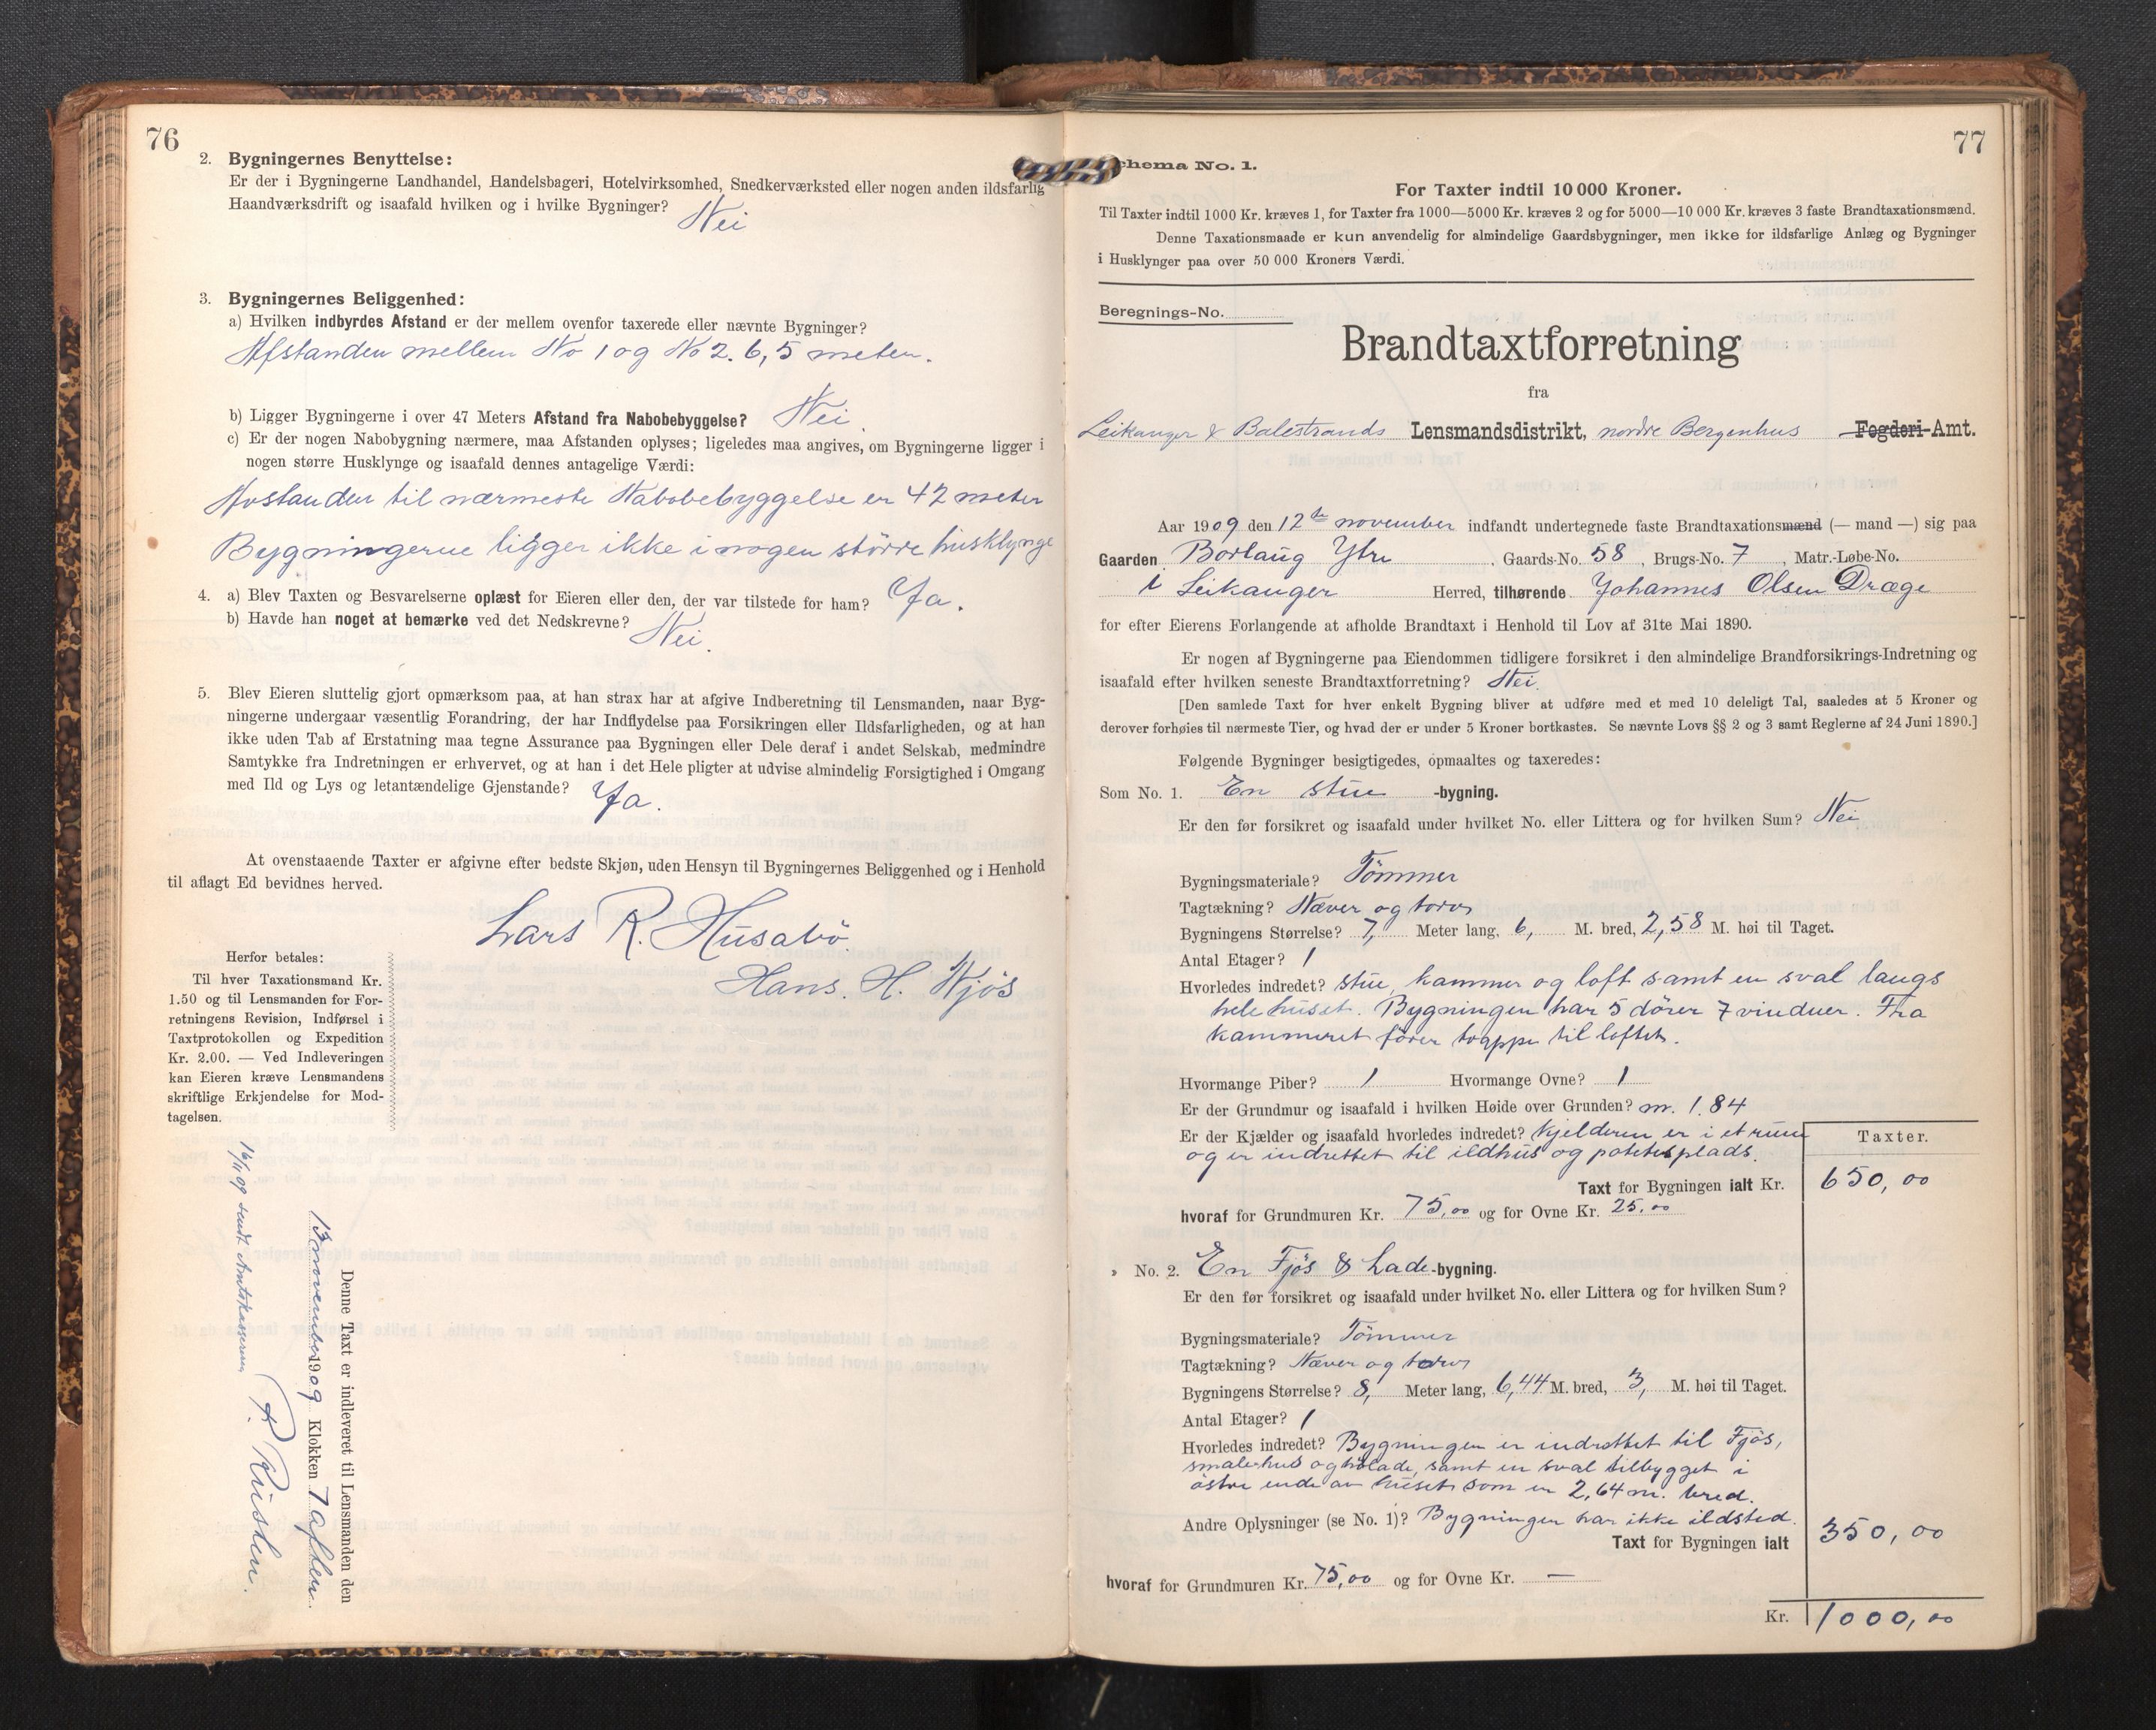 76
2. Bygningernes Benyttelse:
Er der i Bygningerne Landhandel, Handelsbageri, Hotelvirksomhed, Snedkerværksted eller nogen anden ildsfarlig
Haandværksdrift og isaafald hvilken og i hvilke Bygninger? Nei
3. Bygningernes Beliggenhed:
a) Hvilken indbyrdes Afstand er der mellem ovenfor taxerede eller nævnte Bygninger?
Afstanden mellem No 1 og No 2. 6,5 meter.
b) Ligger Bygningerne i over 47 Meters Afstand fra Nabobebyggelse? Nei.
c) Er der nogen Nabobygning nærmere, maa Afstanden oplyses; ligeledes maa angives, om Bygningerne ligger i
nogen større Husklynge og isaafald dennes antagelige Værdi:
Avstanden til nærmeste Nabobebyggelse er 42 meter
Bygningerne ligger ikke i nogen större husklynge
4. a) Blev Taxten og Besvarelserne oplæst for Eieren eller den, der var tilstede for ham? Ja.
b) Havde han noget at bemærke ved det Nedskrevne? Nei.
5. Blev Eieren sluttelig gjort opmærksom paa, at han strax har at afgive Indberetning til Lensmanden, naar Byg-
ningerne undergaar væsentlig Forandring, der har Indflydelse paa Forsikringen eller Ildsfarligheden, og at han
ikke uden Tab af Erstatning maa tegne Assurance paa Bygningen eller Dele deraf i andet Selskab, medmindre
Samtykke fra Indretningen er erhvervet, og at han i det Hele pligter at udvise almindelig Forsigtighed i Omgang
med Ild og Lys og letantændelige Gjenstande? Ja.
At ovenstaaende Taxter er afgivne efter bedste Skjøn, uden Hensyn til Bygningernes Beliggenhed og i Henhold
til aflagt Ed bevidnes herved.
Lars R. Husabö
Hans. H. Njös
Herfor betales:
Til hver Taxationsmand Kr.
1.50 og til Lensmanden for For-
retningens Revision, Indførsel i
Taxtprotokollen og Expedition
Kr. 2.00. — Ved Indleveringen
kan Eieren kræve Lensmandens
skriftlige Erkjendelse for Mod-
tagelsen.
Denne Taxt er indleveret til Lensmanden den
13 november 1909 Klokken 7 aften.
16/11 09 sendt Amtskassereren
77
Schema No. 1.
For Taxter indtil 10 000 Kroner.
Til Taxter indtil 1000 Kr. kræves 1, for Taxter fra 1000—5000 Kr. kræves 2 og for 5000—10 000 Kr. kræves 3 faste Brandtaxationsmænd.
Denne Taxationsmaade er kun anvendelig for almindelige Gaardsbygninger, men ikke for ildsfarlige Anlæg og Bygninger
i Husklynger paa over 50 000 Kroners Værdi.
Beregnings-No.
Brandtaxtforretning
fra
Leikanger & Balestrands Lensmandsdistrikt, nordre Bergenhus Fogderi-Amt.
Aar 1909 den 12te november indfandt undertegnede faste Brandtaxationsmænd (— mand —) sig paa
Gaarden Borlaug Ytre, Gaards-No. 58, Brugs-No. 7, Matr.-Løbe-No.
i Leikanger Herred, tilhørende Johannes Olsen Dræge
for efter Eierens Forlangende at afholde Brandtaxt i Henhold til Lov af 31te Mai 1890.
Er nogen af Bygningerne paa Eiendommen tidligere forsikret i den almindelige Brandforsikrings-Indretning og
isaafald efter hvilken seneste Brandtaxtforretning? Nei.
[Den samlede Taxt for hver enkelt Bygning bliver at udføre med et med 10 deleligt Tal, saaledes at 5 Kroner og
derover forhøies til nærmeste Tier, og hvad der er under 5 Kroner bortkastes. Se nævnte Lovs §§ 2 og 3 samt Reglerne af 24 Juni 1890.]
Følgende Bygninger besigtigedes, opmaaltes og taxeredes:
Som No. 1. En stue -bygning.
Er den før forsikret og isaafald under hvilket No. eller Littera og for hvilken Sum? Nei
Bygningsmateriale? Tömmer
Tagtækning? Næver og torv
Bygningens Størrelse? 7, Meter lang, 6, M. bred, 2,58 M. høi til Taget.
Antal Etager? 1
Hvorledes indredet? stue, kammer og loft samt en sval langs
hele huset. Bygningen har 5 dörer 7 vinduer. Fra
kammeret förer trappe til loftet.
Hvormange Piber? 1 Hvormange Ovne? 1
Er der Grundmur og isaafald i hvilken Høide over Grunden? m. 1.84
Er der Kjælder og isaafald hvorledes indredet? Kjelderen er i et rum
og er indrettet til ildhus og potetesplads.
Taxter.
Taxt for Bygningen ialt Kr. 650,00
hvoraf for Grundmuren Kr. 75,00 og for Ovne Kr. 25,00
» No. 2. En Fjös & Lade-bygning.
Er den før forsikret og isaafald under hvilket No. eller Littera og for hvilken Sum?
Bygningsmateriale? Tömmer
Tagtækning? Næver og torv
Bygningens Størrelse? 8, Meter lang, 6,44 M. bred, 3, M. høi til Taget.
Antal Etager? 1
Hvorledes indredet? Bygningen er indrettet til Fjös,
smalehus og hölade, samt en sval tilbygget i
östre ende av huset som er 2,64 m. bred.
Andre Oplysninger (se No. 1)? Bygningen har ikke ildsted.
Taxt for Bygningen ialt 350,00
hvoraf for Grundmuren Kr. 75,00 og for Ovne Kr. —
Kr. 1000,00